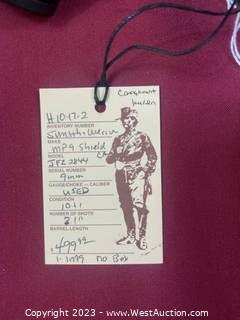 Consignment
H10-17-2
INVENTORY NUMBER
Smith & Wesson
MAKE
MP9 Shield
MODEL
JFZ2844
SERIAL NUMBER
9mm
GAUGE/CHOKE - CALIBER
USED
CONDITION
10+1
NUMBER OF SHOTS
3.1"
BARREL LENGTH
$499.99
No Box
Copyright 2023 - www.WestAuction.com